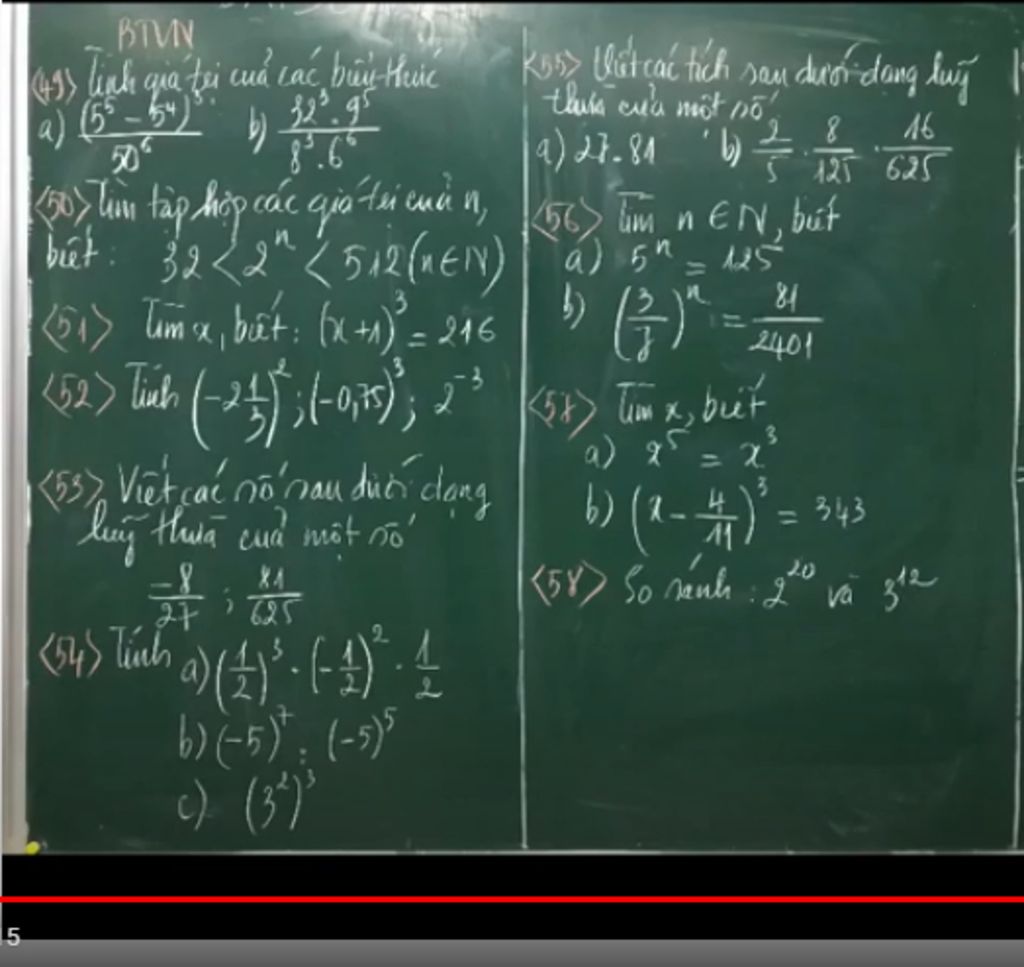 BTVN
<49> Tính giá trị của các biểu thức
a) (5⁵ - 5⁴)³ / 50⁶ b) 32³ . 9⁵ / 8³ . 6⁶
<50> Tìm tập hợp các giá trị của n,
biết : 32 < 2ⁿ < 512 (n ∈ N)
<51> Tìm x, biết : (x + 1)³ = 216
<52> Tính (-2 1/3)² ; (-0,75)³ ; 2⁻³
<53> Viết các số sau dưới dạng
luỹ thừa của một số
-8/27 ; 81/625
<54> Tính a) (1/2)³ . (-1/2)² . 1/2
b) (-5)⁷ : (-5)⁵
c) (3²)³
<55> Viết các tích sau dưới dạng luỹ
thừa của một số
a) 27 . 81 b) 2/5 . 8/125 . 16/625
<56> Tìm n ∈ N, biết
a) 5ⁿ = 125
b) (3/7)ⁿ = 81/2401
<57> Tìm x, biết
a) x⁵ = x³
b) (x - 4/11)³ = 343
<58> So sánh : 2²⁰ và 3¹²
5